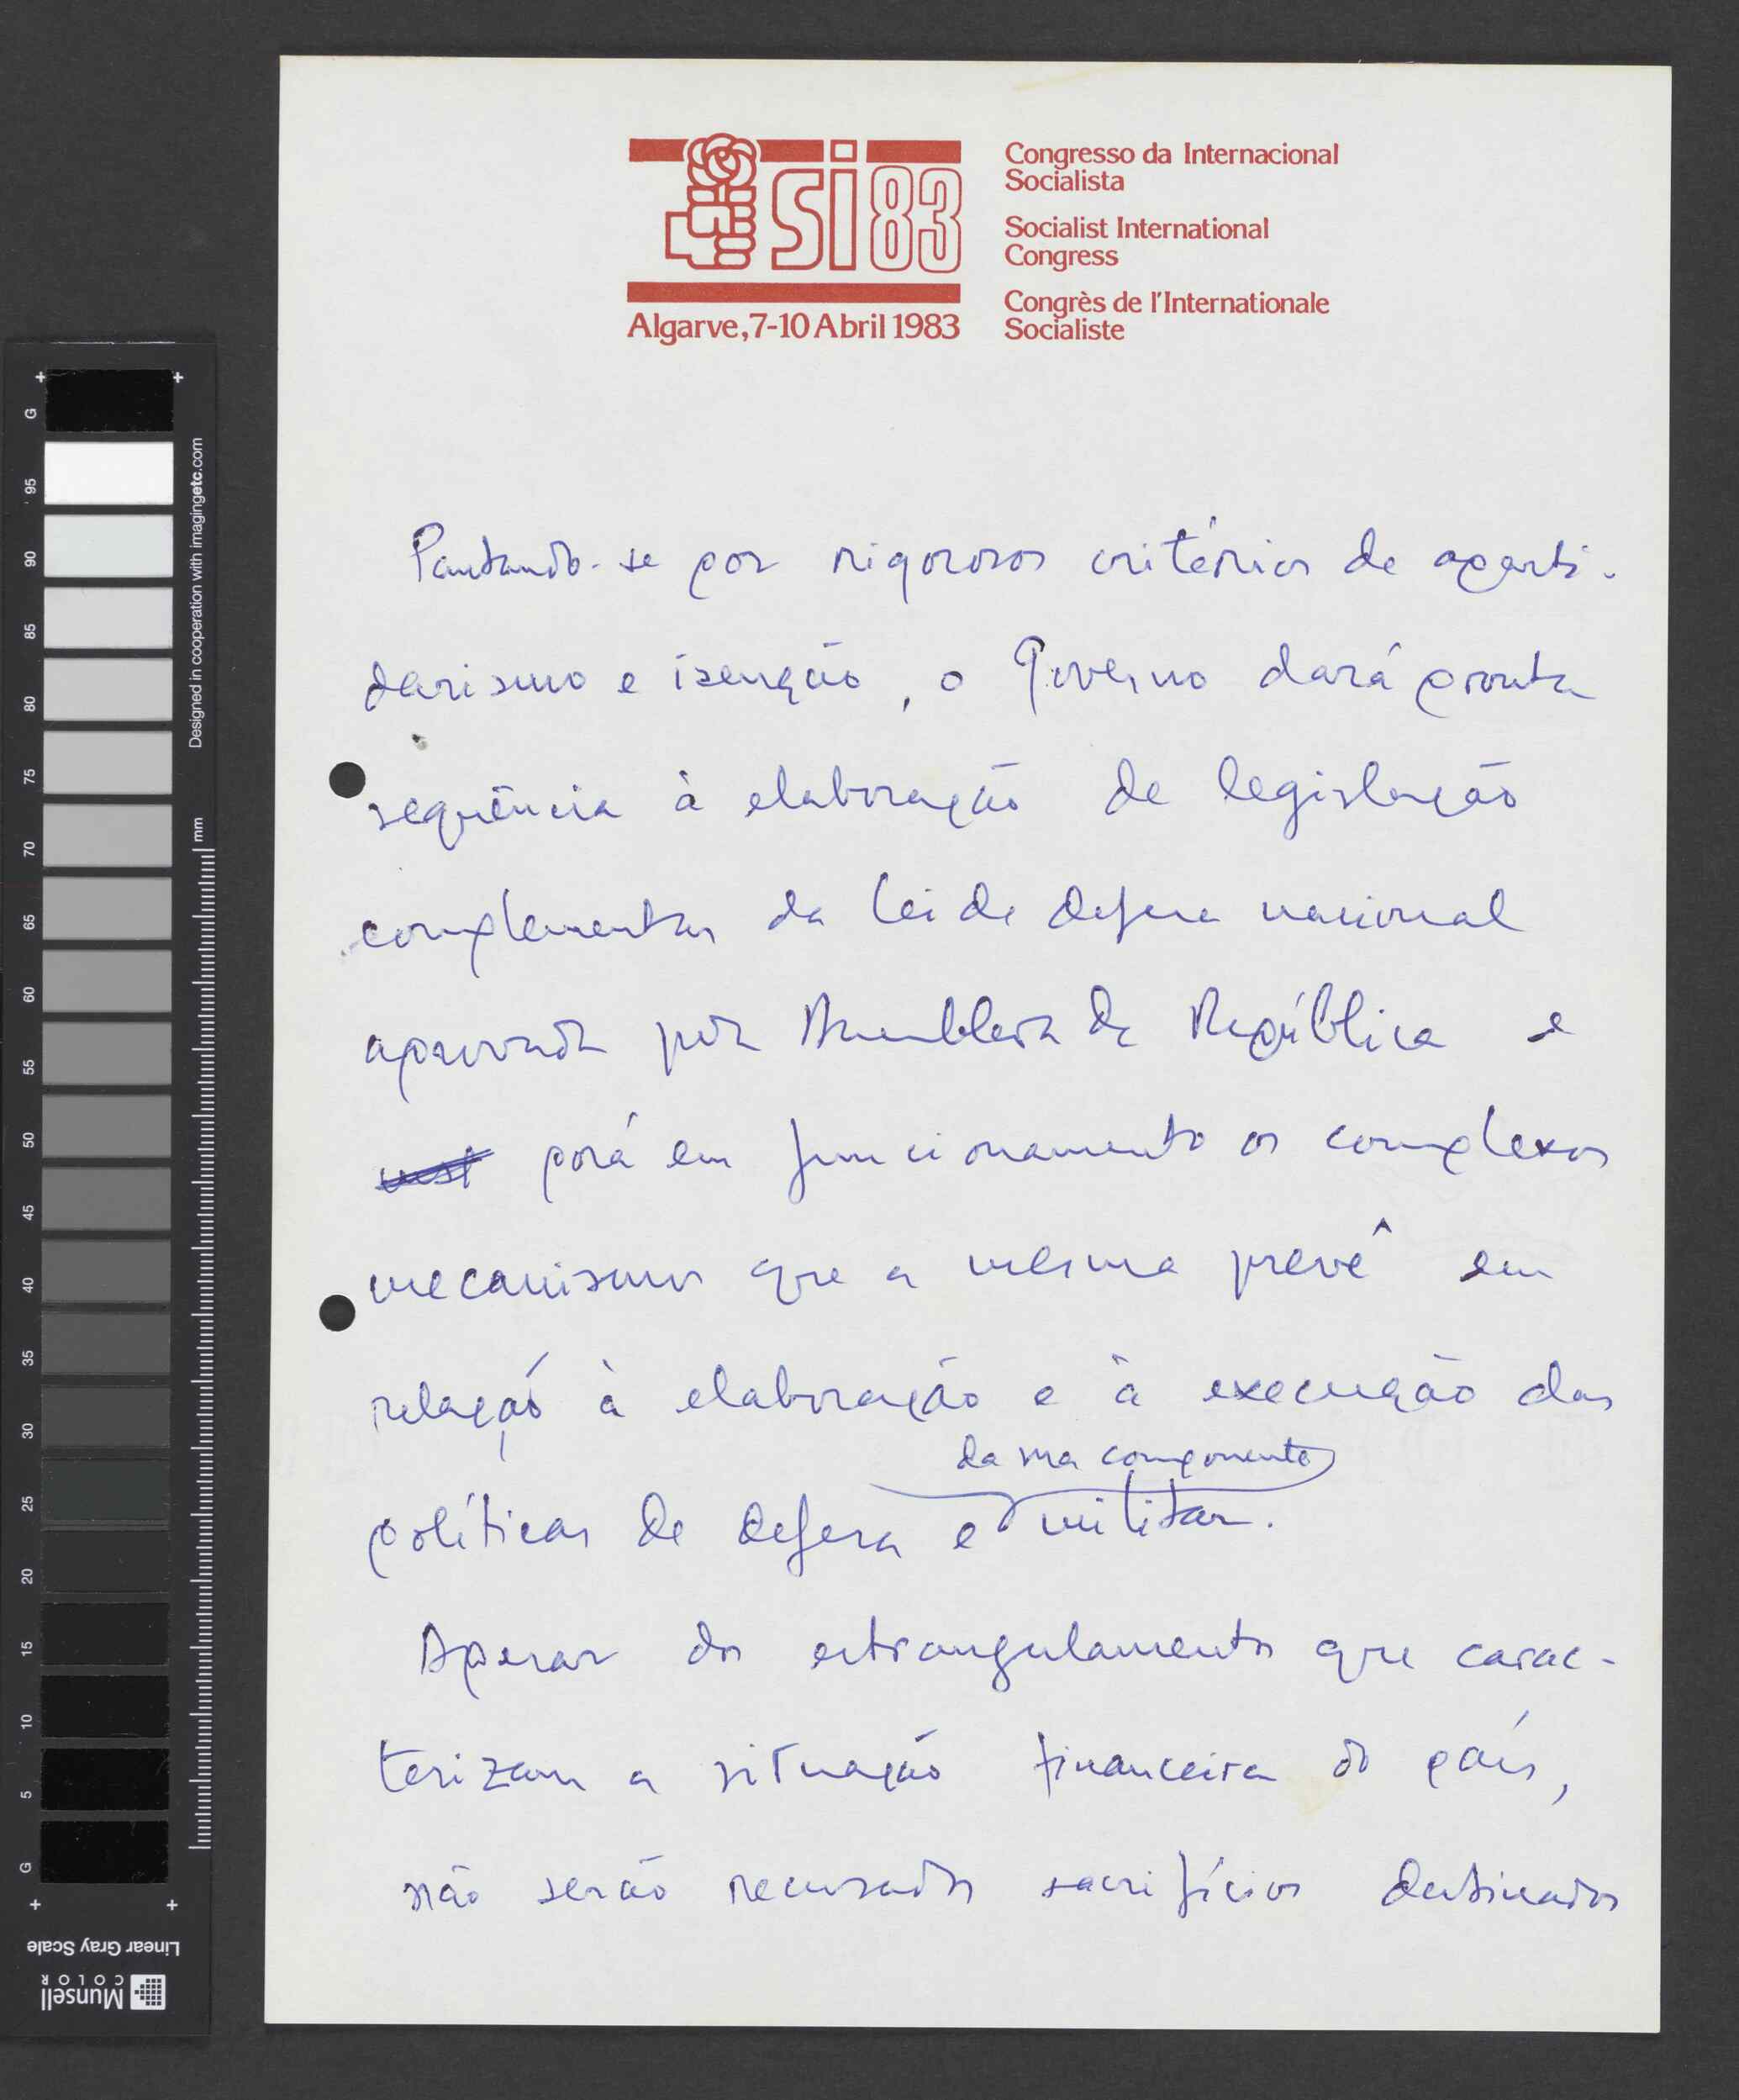 si 83
Algarve, 7-10 Abril 1983
Congresso da Internacional
Socialista
Socialist International
Congress
Congrès de l'Internationale
Socialiste
Pautando-se por rigorosos critérios de aparti-
darismo e isenção, o Governo dará pronta
sequência à elaboração de legislação
complementar da lei de defesa nacional
aprovada pela Assembleia da República e
porá em funcionamento os complexos
mecanismos que a mesma prevê em
relação à elaboração e à execução das
da sua componente
políticas de defesa e militar.
Apesar dos estrangulamentos que carac-
terizam a situação financeira do país,
não serão recusados sacrifícios destinados
G 95 90 85 80 75 70 65 60 55 50 45 40 35 30 25 20 15 10 5 G
Designed in cooperation with imagingetc.com
mm
Linear Gray Scale
Munsell
COLOR